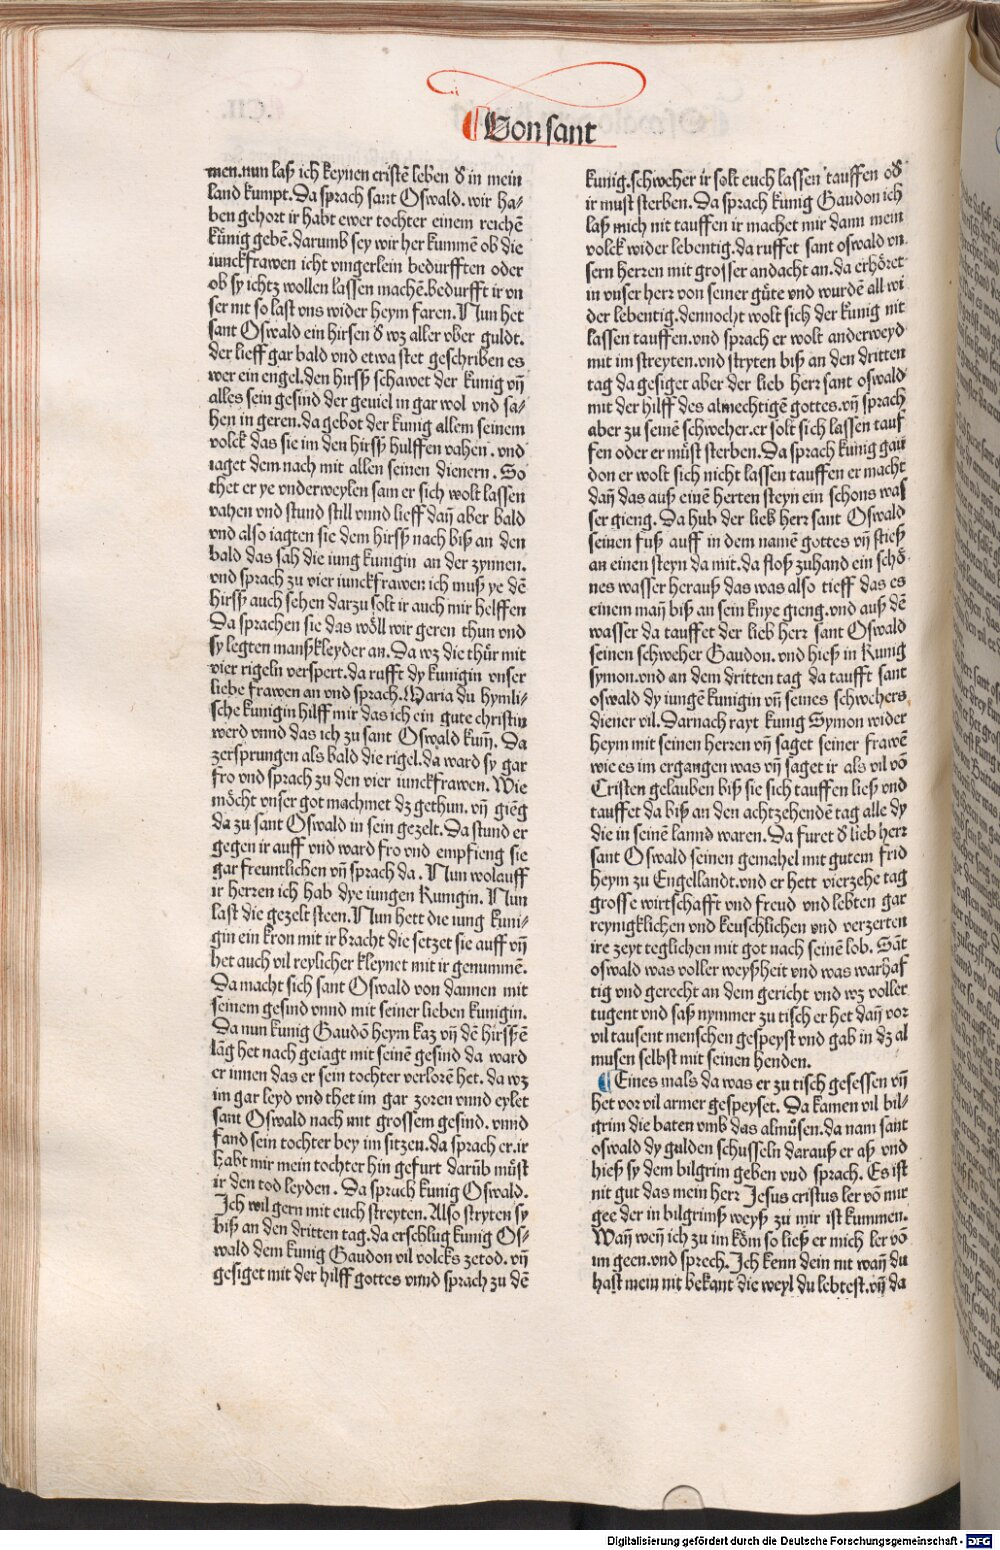 Von sant
men.nun laß ich keynen cristē leben d̕ in mein
land kumpt. Da sprach sant Oswald. wir ha⸗
ben gehort ir habt ewer tochter einem reichē
kúnig gebē. darumb sey wir her kummē ob die
iunckfrawen icht vingerlein bedurfften oder
ob sy ichtz wollen lassen machē.bedurfft ir vn
ser nit so last vns wider heym faren. Nun het
sant Oswald ein hirsen d̕ wz aller vber guldt.
der lieff gar bald vnd etwa stet geschriben es
wer ein engel.den hirsß schawet der kunig vn̄
alles sein gesind der geuiel in gar wol vnd sa⸗
hen in geren.da gebot der kunig allem seinem
volck das sie im den hirsß hulffen vahen. vnd
iaget dem nach mit allen seinen dienern. So
thet er ye vnderweylen sam er sich wolt lassen
vahen vnd stund still vnnd lieff dan̄ aber bald
vnd also iagten sie dem hirsß nach biß an den
bald das sah die iung kunigin an der zynnen.
vnd sprach zu vier iunckfrawen ich muß ye dē
hirsß auch sehen darzu solt ir auch mir helffen
Da sprachen sie das wöll wir geren thun vnd
sy legten manßkleyder an. Da wz die thúr mit
vier rigeln verspert.da rufft dy kunigin vnser
liebe frawen an vnd sprach. Maria du hymli⸗
sche kunigin hilff mir das ich ein gute christin
werd vnnd das ich zu sant Oswald kum̄. Da
zersprungen als bald die rigel.da ward sy gar
fro vnd sprach zu den vier iunckfrawen. Wie
möcht vnser got machmet dz gethun. vn̄ giēg
da zu sant Oswald in sein gezelt. Da stund er
gegen ir auff vnd ward fro vnd empfieng sie
gar freuntlichen vn̄ sprach da. Nun wolauff
ir herren ich hab dye iungen Kunigin. Nun
last die gezelt steen. Nun hett die iung kuni⸗
gin ein kron mit ir bracht die setzet sie auff vn̄
het auch vil reylicher kleynet mit ir genummē.
Da macht sich sant Oswald von dannen mit
seinem gesind vnnd mit seiner lieben kunigin.
Da nun kunig Gaudō heym kaz vn̄ dē hirsßē
lāg het nach geiagt mit seinē gesind da ward
er innen das er sein tochter verlorē het. da wz
im gar leyd vnd thet im gar zoren vnnd eylet
sant Oswald nach mit grossem gesind. vnnd
fand sein tochter bey im sitzen.da sprach er.ir
habt mir mein tochter hin gefurt darūb múst
ir den tod leyden. Da sprach kunig Oswald.
Ich wil gern mit euch streyten. Also stryten sy
biß an den dritten tag.da erschlug kunig Os⸗
wald dem kunig Gaudon vil volcks zetod. vn̄
gesiget mit der hilff gottes vnnd sprach zu dē
kunig.schweher ir solt euch lassen tauffen od̕
ir must sterben. Da sprach kunig Gaudon ich
laß mich nit tauffen ir machet mir dann mein
volck wider lebentig.da ruffet sant oswald vn
sern herren mit grosser andacht an.da erhöret
in vnser herr von seiner gúte vnd wurdē all wi
der lebentig.dennocht wolt sich der kunig nit
lassen tauffen.vnd sprach er wolt anderweyd
mit im streyten.vnd stryten biß an den dritten
tag da gesiget aber der lieb herr sant oswald
mit der hilff des almechtigē gottes.vn̄ sprach
aber zu seinē schweher.er solt sich lassen tauf
fen oder er múst sterben. Da sprach kunig gau
don er wolt sich nicht lassen tauffen er macht
dan̄ das auß einē herten steyn ein schons was
ser gieng. Da hub der lieb herr sant Oswald
seinen fuß auff in dem namē gottes vn̄ stieß
an einen steyn da mit.da floß zuhand ein schö
nes wasser herauß das was also tieff das es
einem man̄ biß an sein knye gieng.vnd auß dē
wasser da tauffet der lieb herr sant Oswald
seinen schweher Gaudon. vnd hieß in Kunig
symon.vnd an dem dritten tag da taufft sant
oswald dy iungē kunigin vn̄ seines schwehers
diener vil. Darnach rayt kunig Symon wider
heym mit seinen herren vn̄ saget seiner frawē
wie es im ergangen was vn̄ saget ir als vil vō
Cristen gelauben biß sie sich tauffen ließ vnd
tauffet da biß an den achtzehendē tag alle dy
die in seinē lannd waren. Da furet d̕ lieb herr
sant Oswald seinen gemahel mit gutem frid
heym zu Engellandt.vnd er hett vierzehe tag
grosse wirtschafft vnd freud vnd lebten gar
reynigklichen vnd keuschlichen vnd verzerten
ire zeyt teglichen mit got nach seinē lob. Sāt
oswald was voller weyßheit vnd was warhaf
tig vnd gerecht an dem gericht vnd wz voller
tugent vnd saß nymmer zu tisch er het dan̄ vor
vil tausent menschen gespeyst vnd gab in dz al
musen selbst mit seinen henden.
¶ Eines mals da was er zu tisch gesessen vn̄
het vor vil armer gespeyset. Da kamen vil bil⸗
grim die baten vmb das almúsen.da nam sant
oswald dy gulden schusseln darauß er aß vnd
hieß sy dem bilgrim geben vnd sprach. Es ist
nit gut das mein herr Jesus cristus ler vō mir
gee der in bilgrimß weyß zu mir ist kummen.
Wan̄ wen̄ ich zu im kōm so ließ er mich ler vō
im geen.vnd sprech. Ich kenn dein nit wan̄ du
hast mein nit bekant die weyl du lebtest.vn̄ da
Digitalisierung gefördert durch die Deutsche Forschungsgemeinschaft - DFG